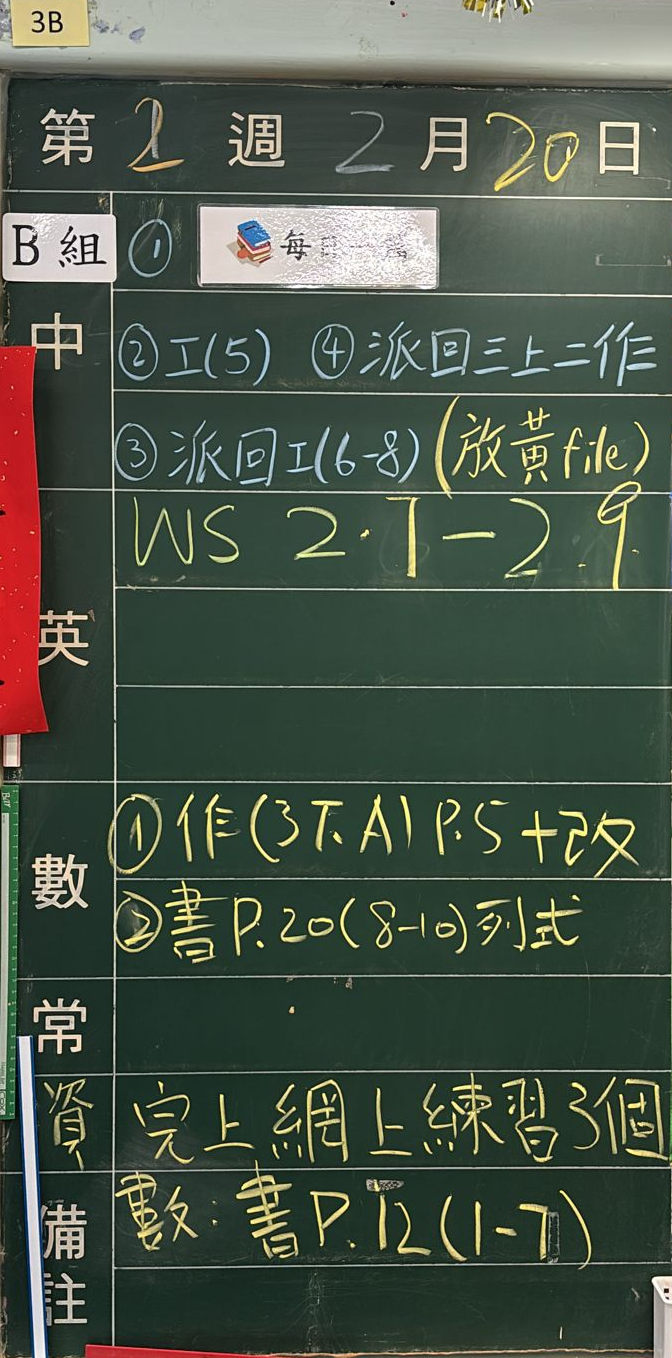 3B
第 2 週 2 月 20 日
B組 ① 每日一篇
中 ②工(5) ④派回三上二作
③派回工(6-8)(放黃file)
WS 2.7-2.9
英
數 ①作(3下A) P.5+改
②書P.20(8-10)列式
常
資 完上網上練習3個
備註 數:書P.12(1-7)